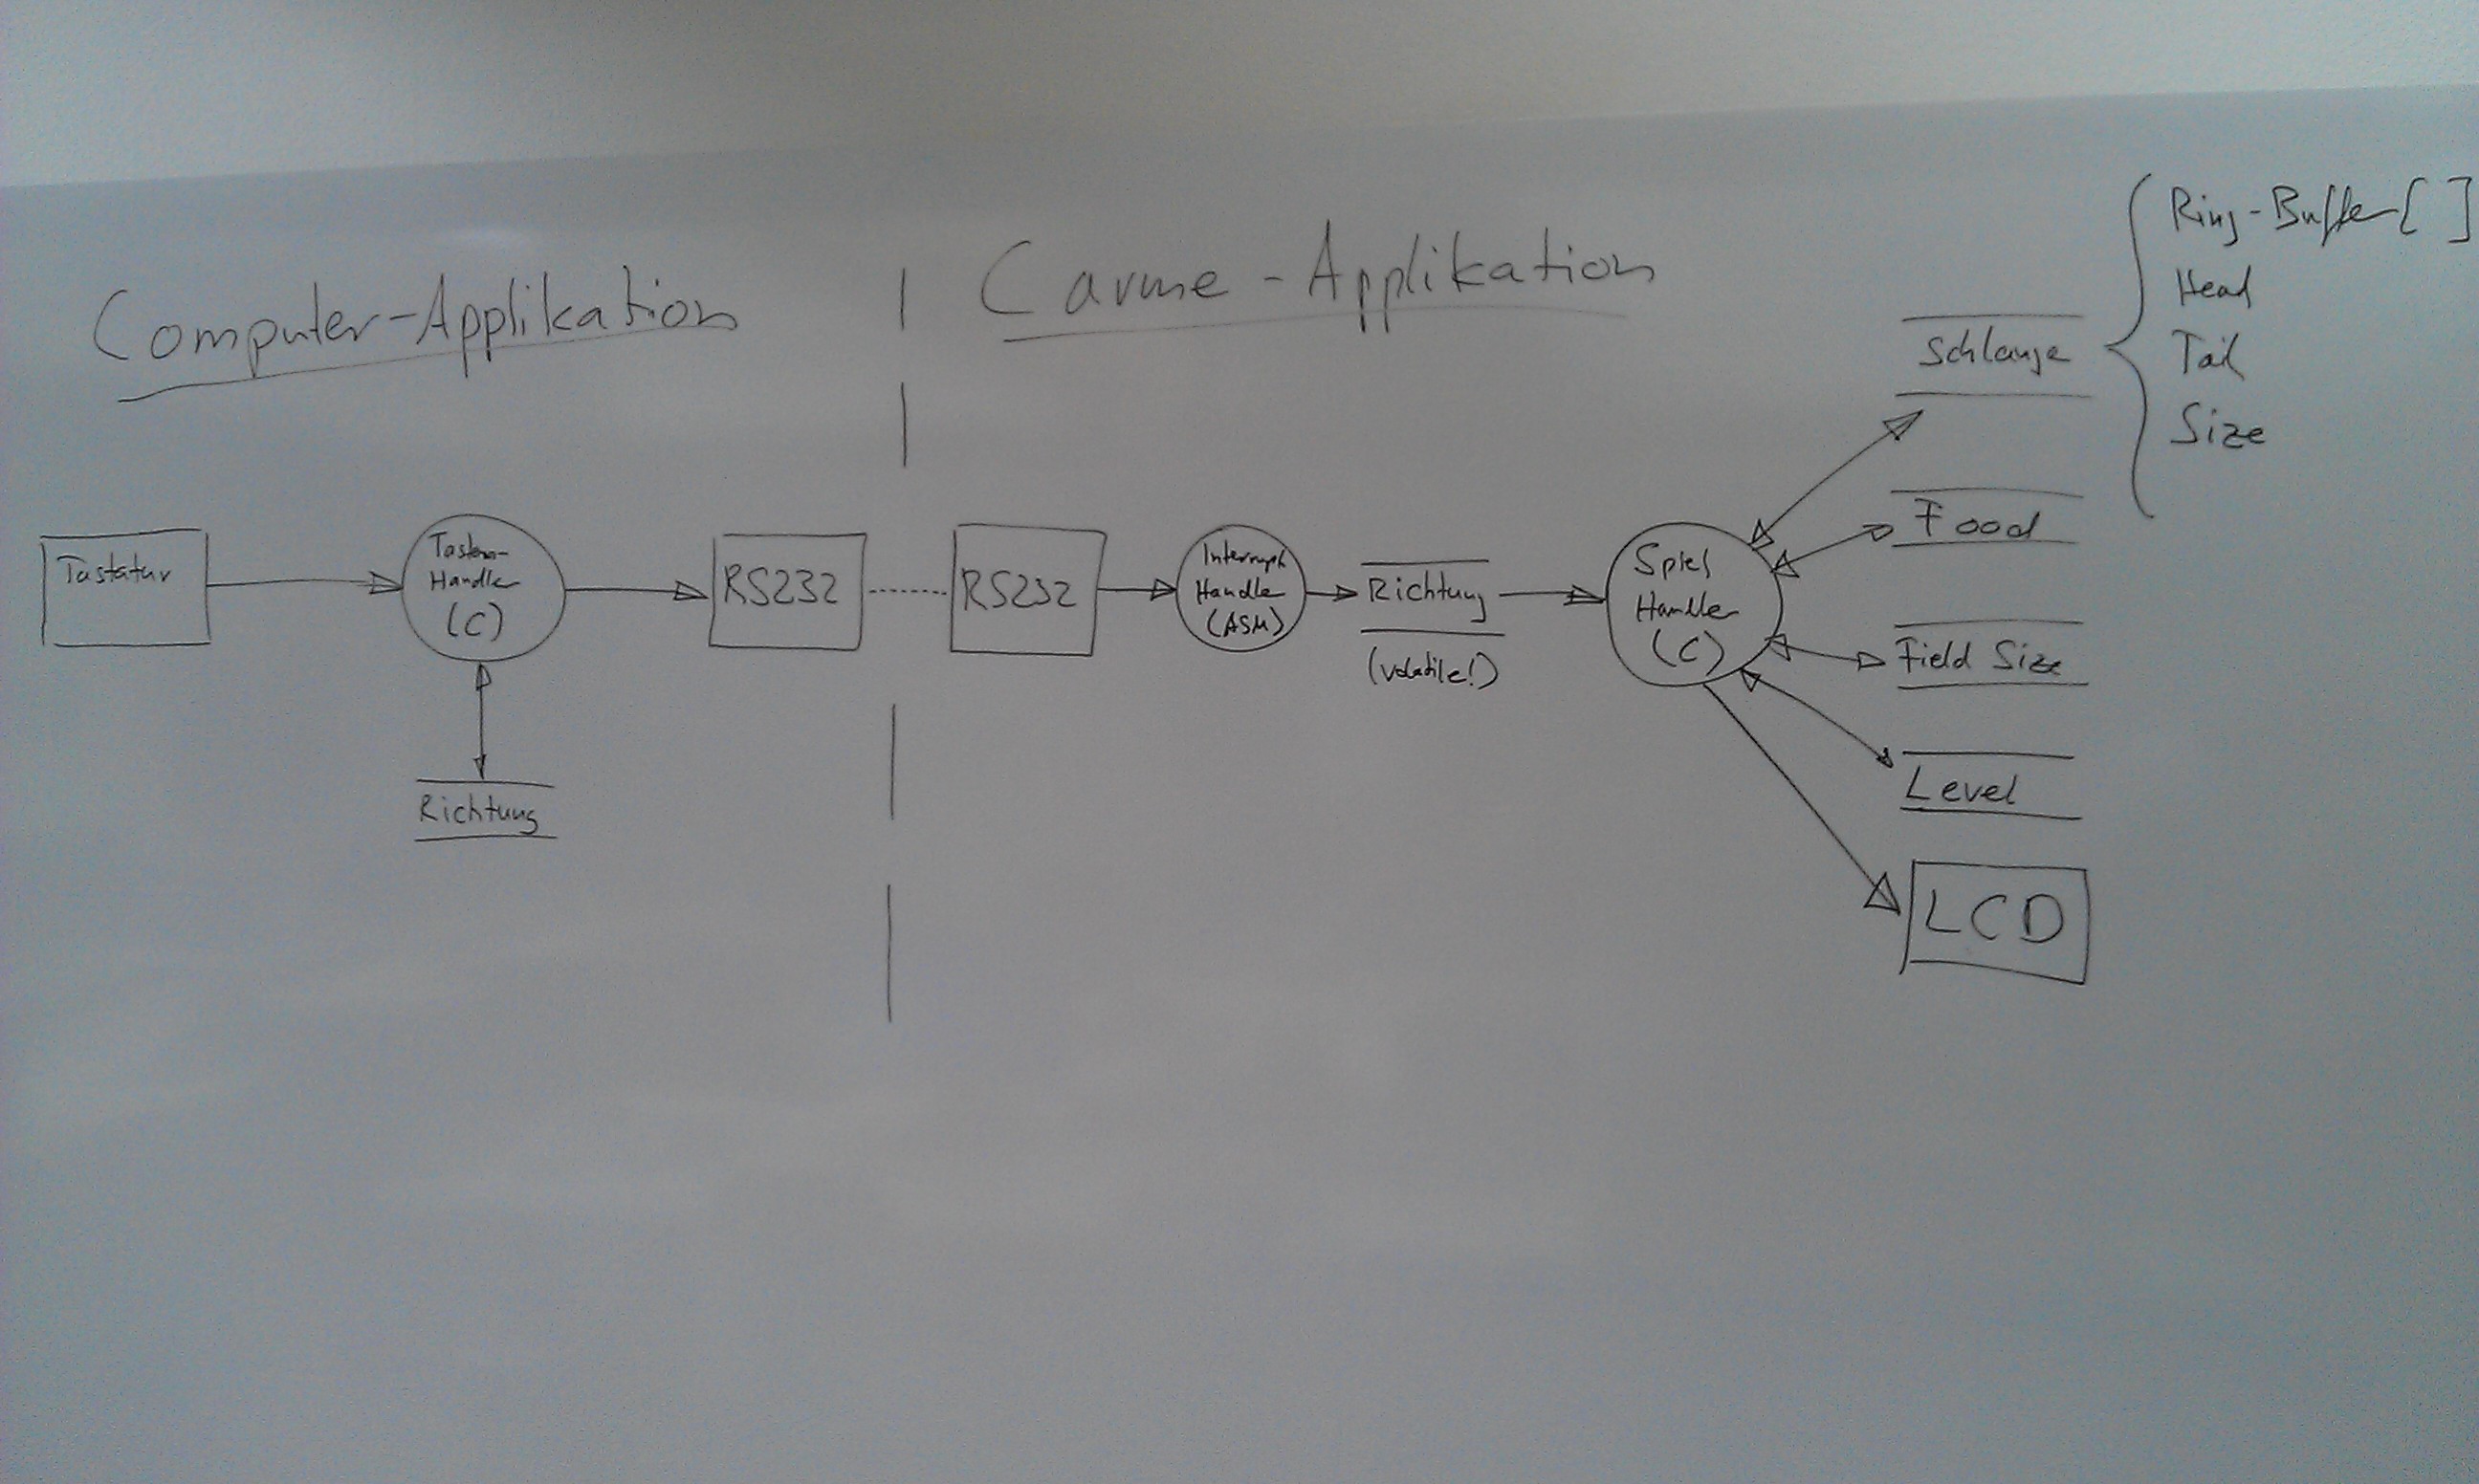 Computer-Applikation
Carme-Applikation
Tastatur
Tasten-
Handler
(C)
Richtung
RS232
RS232
Interrupt
Handler
(ASM)
Richtung
(volatile!)
Spiel
Handler
(C)
Schlange
Ring-Buffer[ ]
Head
Tail
Size
Food
Field Size
Level
LCD